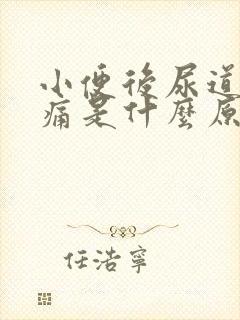 小便後尿道
痛是什麼原
任浩寧